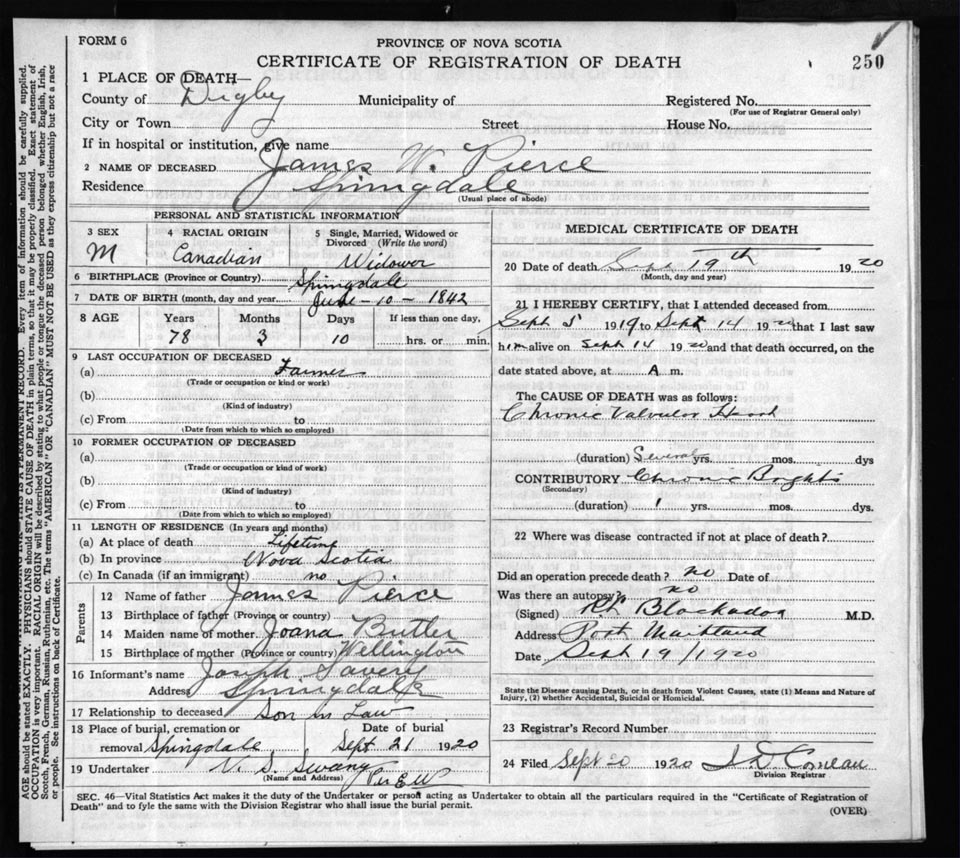 FORM 6
PROVINCE OF NOVA SCOTIA
CERTIFICATE OF REGISTRATION OF DEATH
250
1 PLACE OF DEATH—
County of Digby Municipality of Registered No.
(For use of Registrar General only)
City or Town Street House No.
If in hospital or institution, give name
2 NAME OF DECEASED James W. Pierce
Residence Springdale
(Usual place of abode)
PERSONAL AND STATISTICAL INFORMATION
3 SEX M
4 RACIAL ORIGIN Canadian
5 Single, Married, Widowed or Divorced (Write the word) Widower
6 BIRTHPLACE (Province or Country) Springdale
7 DATE OF BIRTH (month, day and year) June-10-1842
8 AGE Years Months Days If less than one day,
78 3 10 hrs. or min.
9 LAST OCCUPATION OF DECEASED
(a) Farmer
(Trade or occupation or kind or work)
(b)
(Kind of industry)
(c) From to
(Date from which to which so employed)
10 FORMER OCCUPATION OF DECEASED
(a)
(Trade or occupation or kind of work)
(b)
(Kind of industry)
(c) From to
(Date from which to which so employed)
11 LENGTH OF RESIDENCE (In years and months)
(a) At place of death Lifetime
(b) In province Nova Scotia
(c) In Canada (if an immigrant) no
Parents
12 Name of father James Pierce
13 Birthplace of father (Province or country)
14 Maiden name of mother Joana Butler
15 Birthplace of mother (Province or country) Wellington
16 Informant's name Joseph Savery
Address Springdale
17 Relationship to deceased Son in Law
18 Place of burial, cremation or Date of burial
removal Springdale Sept 21 1920
19 Undertaker V. S. Sweeny Per E W
(Name and Address)
MEDICAL CERTIFICATE OF DEATH
20 Date of death 19th 1920
(Month, day and year)
21 I HEREBY CERTIFY, that I attended deceased from
Sept 5 1919 to Sept 14 1920 that I last saw
him alive on Sept 14 1920 and that death occurred, on the
date stated above, at A m.
The CAUSE OF DEATH was as follows:
Chronic Valvular Heart
(duration) Several yrs. mos. dys
CONTRIBUTORY Chronic Brights
(Secondary)
(duration) 1 yrs. mos. dys.
22 Where was disease contracted if not at place of death?
Did an operation precede death? no Date of
Was there an autopsy? no
(Signed) M.D.
Address Port Maitland
Date Sept 19/1920
State the Disease causing Death, or in death from Violent Causes, state (1) Means and Nature of
Injury, (2) whether Accidental, Suicidal or Homicidal.
23 Registrar's Record Number
24 Filed Sept 20 1920 Comeau
Division Registrar
SEC. 46—Vital Statistics Act makes it the duty of the Undertaker or person acting as Undertaker to obtain all the particulars required in the "Certificate of Registration of
Death" and to fyle the same with the Division Registrar who shall issue the burial permit.
(OVER)
THIS IS A PERMANENT RECORD. Every item of information should be carefully supplied.
AGE should be stated EXACTLY. PHYSICIANS should STATE CAUSE OF DEATH in plain terms, so that it may be properly classified. Exact statement of
OCCUPATION is very important. RACIAL ORIGIN will be described by stating to what people or tongue the deceased person belonged whether English, Irish,
Scotch, French, German, Russian, Ruthenian, etc. The terms "AMERICAN" OR "CANADIAN" MUST NOT BE USED as they express citizenship but not a race
or people. See instructions on back of Certificate.